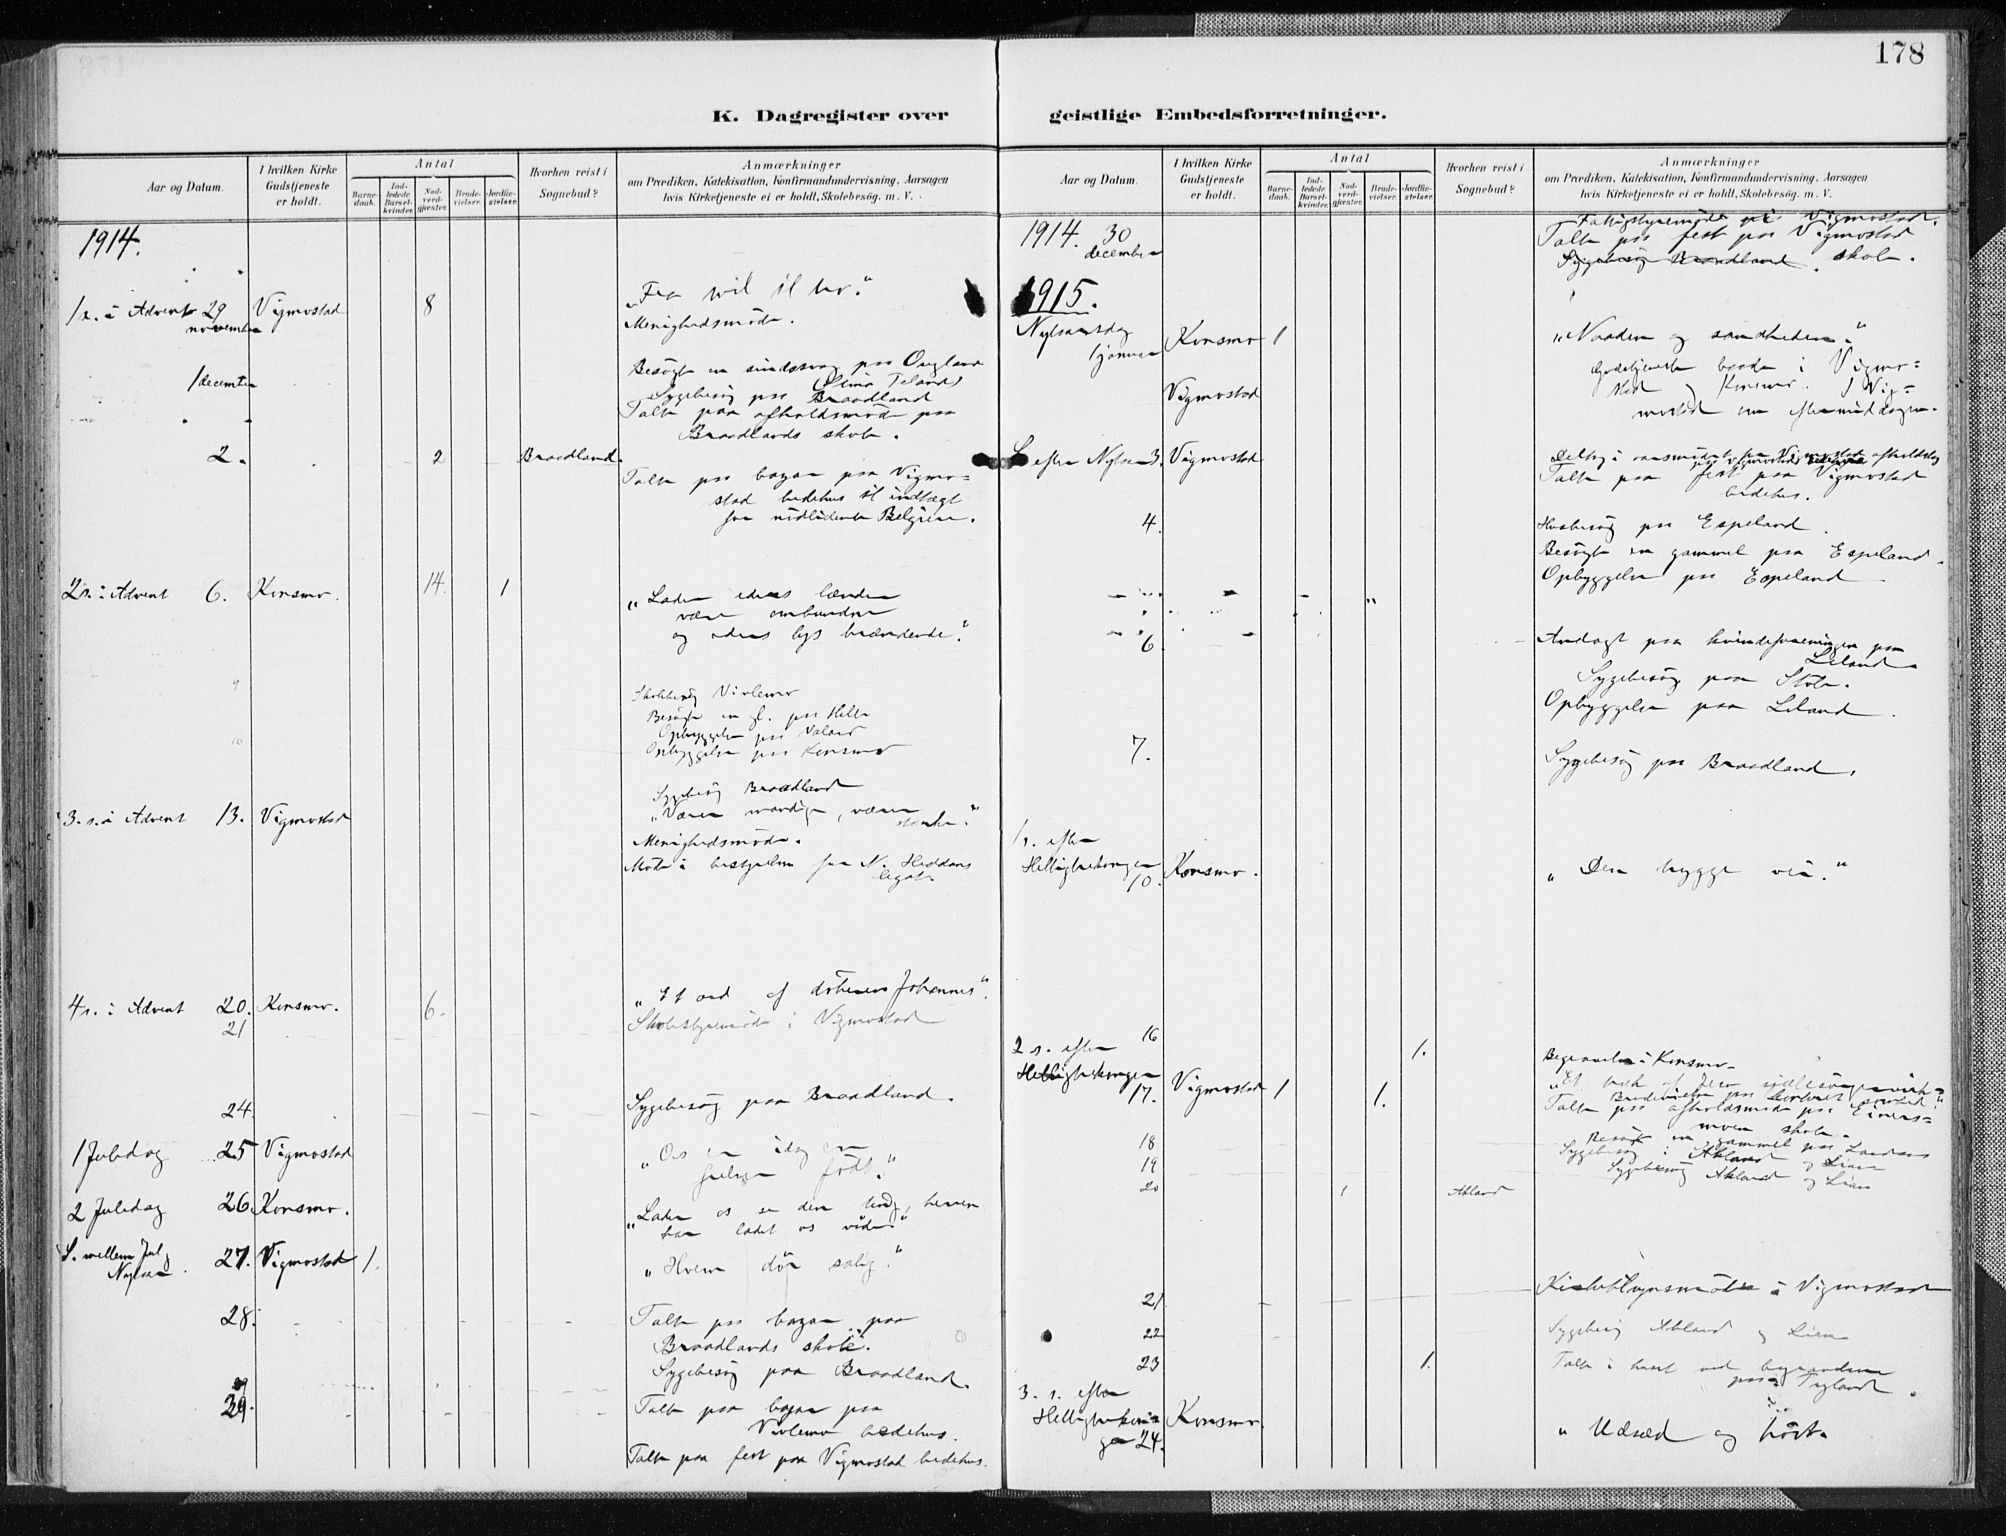 178
K. Dagregister over geistlige Embedsforretninger.
Aar og Datum.
I hvilken Kirke Gudstjeneste er holdt.
Antal
Barnedaab.
Indledede Barselkvinder.
Nadverdgjester.
Brudevielser.
Jordfæstelser.
Hvorhen reist i Sognebud?
Anmærkninger
om Prædiken, Katekisation, Konfirmandundervisning, Aarsagen
hvis Kirketjeneste ei er holdt, Skolebesøg. m. V.
1914.
1 s. i Advent 29 Vigmostad 8
november
Menighedsmöde.
1 december
Besögte en sindssvag paa
Sygebesög paa Braadland
Talte paa afholdsmöde paa
Braadlands skole.
2. 2 Braadland.
Talte paa bazar paa Vigmo=
stad bedehus til indtægt
for nödlidende Belgiere.
2 s. i Advent 6. Konsmo. 14. 1
"Lader eders lænder
være ombundne
og eders lys brændende."
9
Skolebesög Viblemo
Besögte en gl. paa Helle
Opbyggelse paa Valand
10
Opbyggelse paa Konsmo
Sygebesög Braadland
3. s. i Advent 13. Vigmostad
"Værer mandige, værer
stærke."
Menighedsmöde.
Möte i bestyrelsen for N. Heddans
legat
4 s. i Advent 20. Konsmo. 6.
"Et ord af döberen Johannes".
21
Skolestyremöde i Vigmostad
24.
Sygebesög paa Braadland.
1 Juledag 25 Vigmostad
"Os er idag en
frelser födt."
2 Juledag 26. Konsmo.
"Lader os se den ting, herren
har ladet os vide"
S. mellem Jul og 27. Vigmostad 1.
Nytaar.
"Hvem dör salig."
28.
Talte paa bazar paa
Braadlands skole.
Sygebesög paa Braadland.
29.
Talte paa bazar paa
Viblemo bedehus.
Talte paa fest paa Vigmostad bedehus.
K. Dagregister over geistlige Embedsforretninger.
Aar og Datum.
I hvilken Kirke Gudstjeneste er holdt.
Antal
Barnedaab.
Indledede Barselkvinder.
Nadverdgjester.
Brudevielser.
Jordfæstelser.
Hvorhen reist i Sognebud?
Anmærkninger
om Prædiken, Katekisation, Konfirmandundervisning, Aarsagen
hvis Kirketjeneste ei er holdt, Skolebesøg. m. V.
1914. 30
december
Fattigstyremöde paa Vigmostad.
Talte paa fest paa Vigmostad
skole.
Sygebesög Braadland.
1915.
Nytaarsdag Konsmo 1
1 januar
"Naaden og sandheden."
Vigmostad
Gudstjeneste baade i Vigmo=
stad og Konsmo. I Vig=
mostad om eftermiddagen.
S. efter Nytaar 3. Vigmostad
Talte paa fest paa Vigmostad
bedehus.
4.
Husbesög paa Espeland.
Besögte en gammel paa Espeland.
Opbyggelse paa Espeland
6.
Andagt paa kvindeforeningen paa
Leland
Sygebesög paa Stöle.
Opbyggelse paa Leland.
7.
Sygebesög paa Braadland.
1 s. efter
Helligtrekonger 10. Konsmo.
"Den trygge vei."
16 1.
Begravelse i Konsmo.
2 s. efter
Helligtrekonger 17. Vigmostad 1 1.
Talte paa afholdsmöde paa Einers=
moen skole.
18
Besögte en gammel paa
19
Sygebesög i Abland og Lian
20 1 Abland
Sygebesög Abland og Lian
21
Kirketilsynsmöte i Vigmostad
22
Sygebesög Abland og Lian
23 1.
Talte i huset ved begravelsen
paa Tryland.
3. s. efter
Helligtrekon=
ger 24. Konsmo.
"Udsæd og höst.